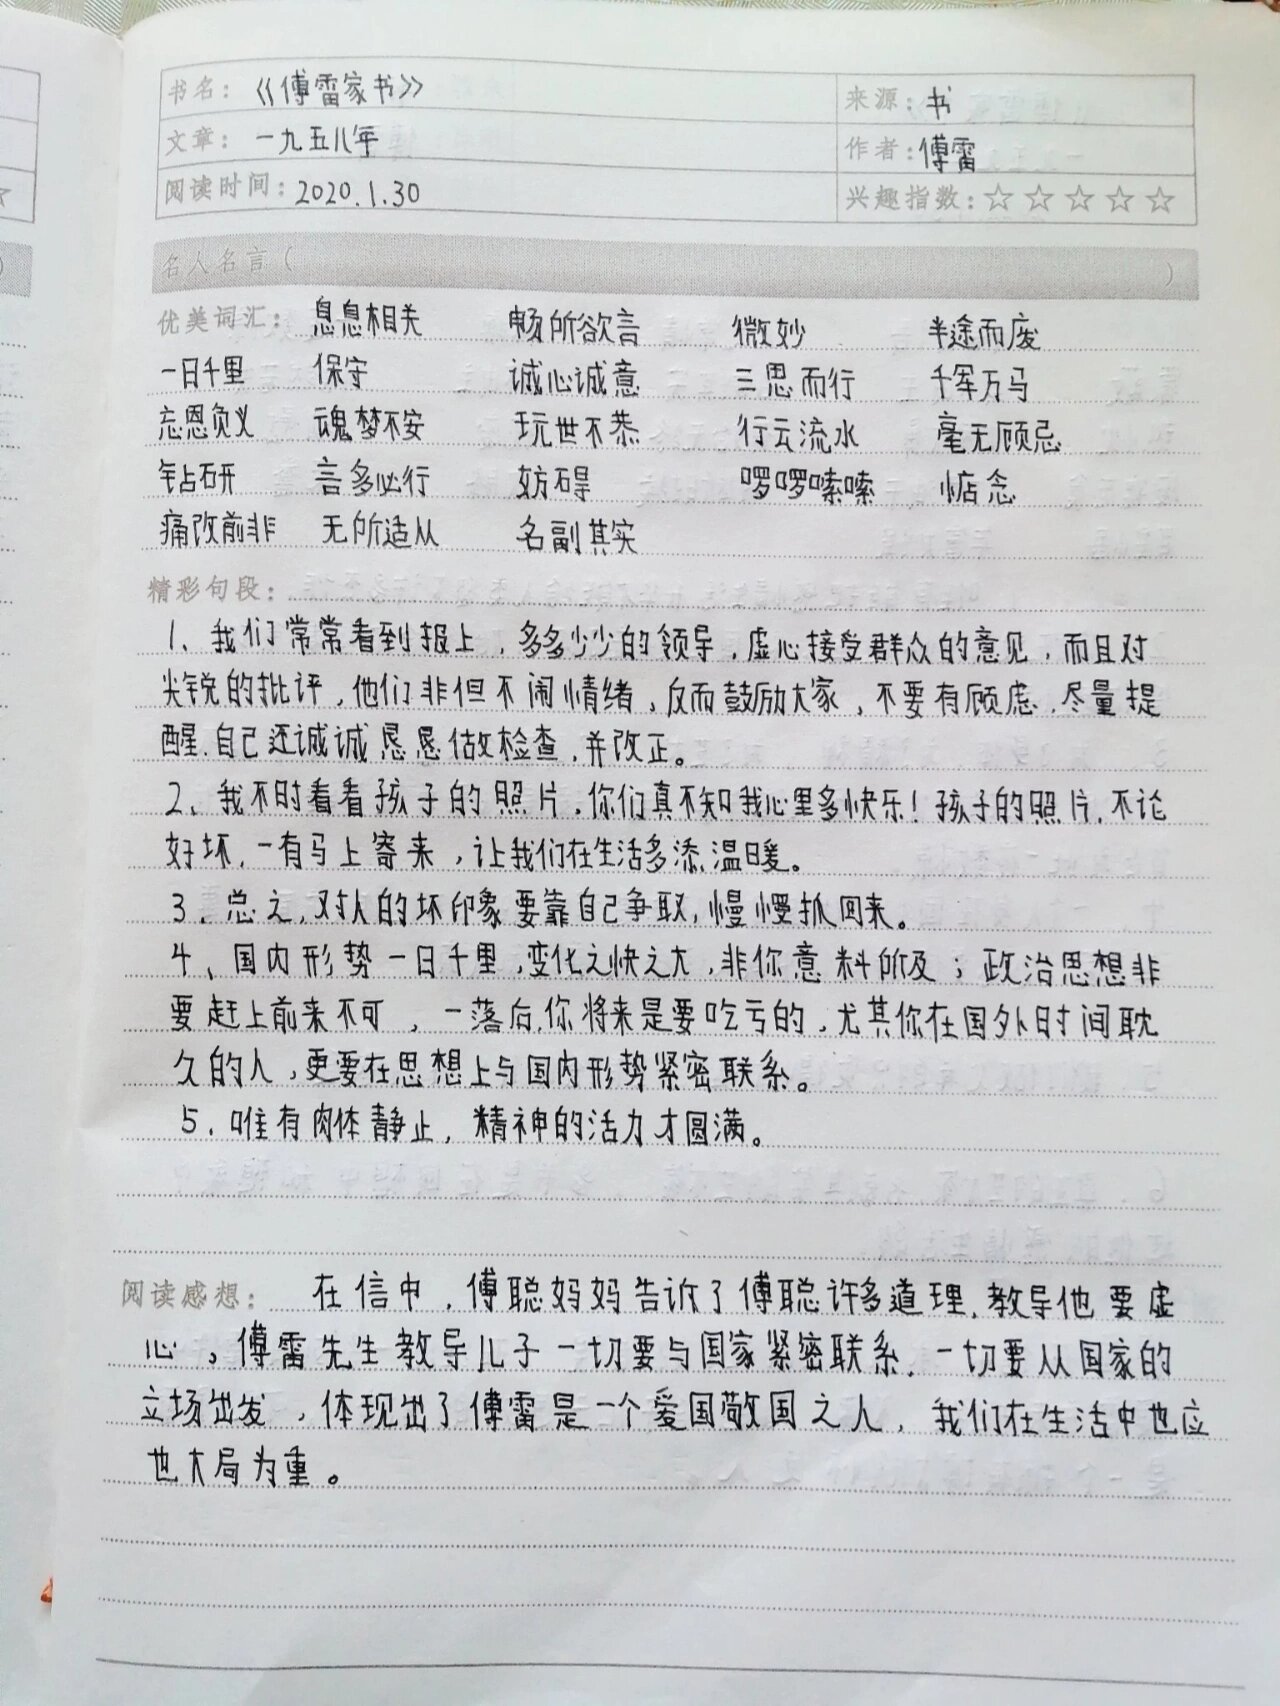 书名：《傅雷家书》 来源：书
文章：一九五八年 作者：傅雷
阅读时间：2020.1.30 兴趣指数：☆☆☆☆☆
名人名言（ ）
优美词汇：息息相关 畅所欲言 微妙 半途而废
一日千里 保守 诚心诚意 三思而行 千军万马
忘恩负义 魂梦不安 玩世不恭 行云流水 毫无顾忌
钻研 言多必行 妨碍 啰啰嗦嗦 惦念
痛改前非 无所适从 名副其实
精彩句段：
1、我们常常看到报上，多多少少的领导，虚心接受群众的意见，而且对
尖锐的批评，他们非但不闹情绪，反而鼓励大家，不要有顾虑，尽量提
醒，自己还诚诚恳恳做检查，并改正。
2、我不时看看孩子的照片，你们真不知我心里多快乐！孩子的照片，不论
好坏，一有马上寄来，让我们在生活多添温暖。
3、总之，对人的坏印象要靠自己争取，慢慢抓回来。
4、国内形势一日千里，变化之快之大，非你意料所及；政治思想非
要赶上前来不可，一落后，你将来是要吃亏的，尤其你在国外日时间耽
久的人，更要在思想上与国内形势紧密联系。
5、唯有肉体静止，精神的活力才圆满。
阅读感想：在信中，傅聪妈妈告诉了傅聪许多道理，教导他要虚
心。傅雷先生教导儿子一切要与国家紧密联系，一切要从国家的
立场出发，体现出了傅雷是一个爱国敬国之人，我们在生活中也应
也大局为重。